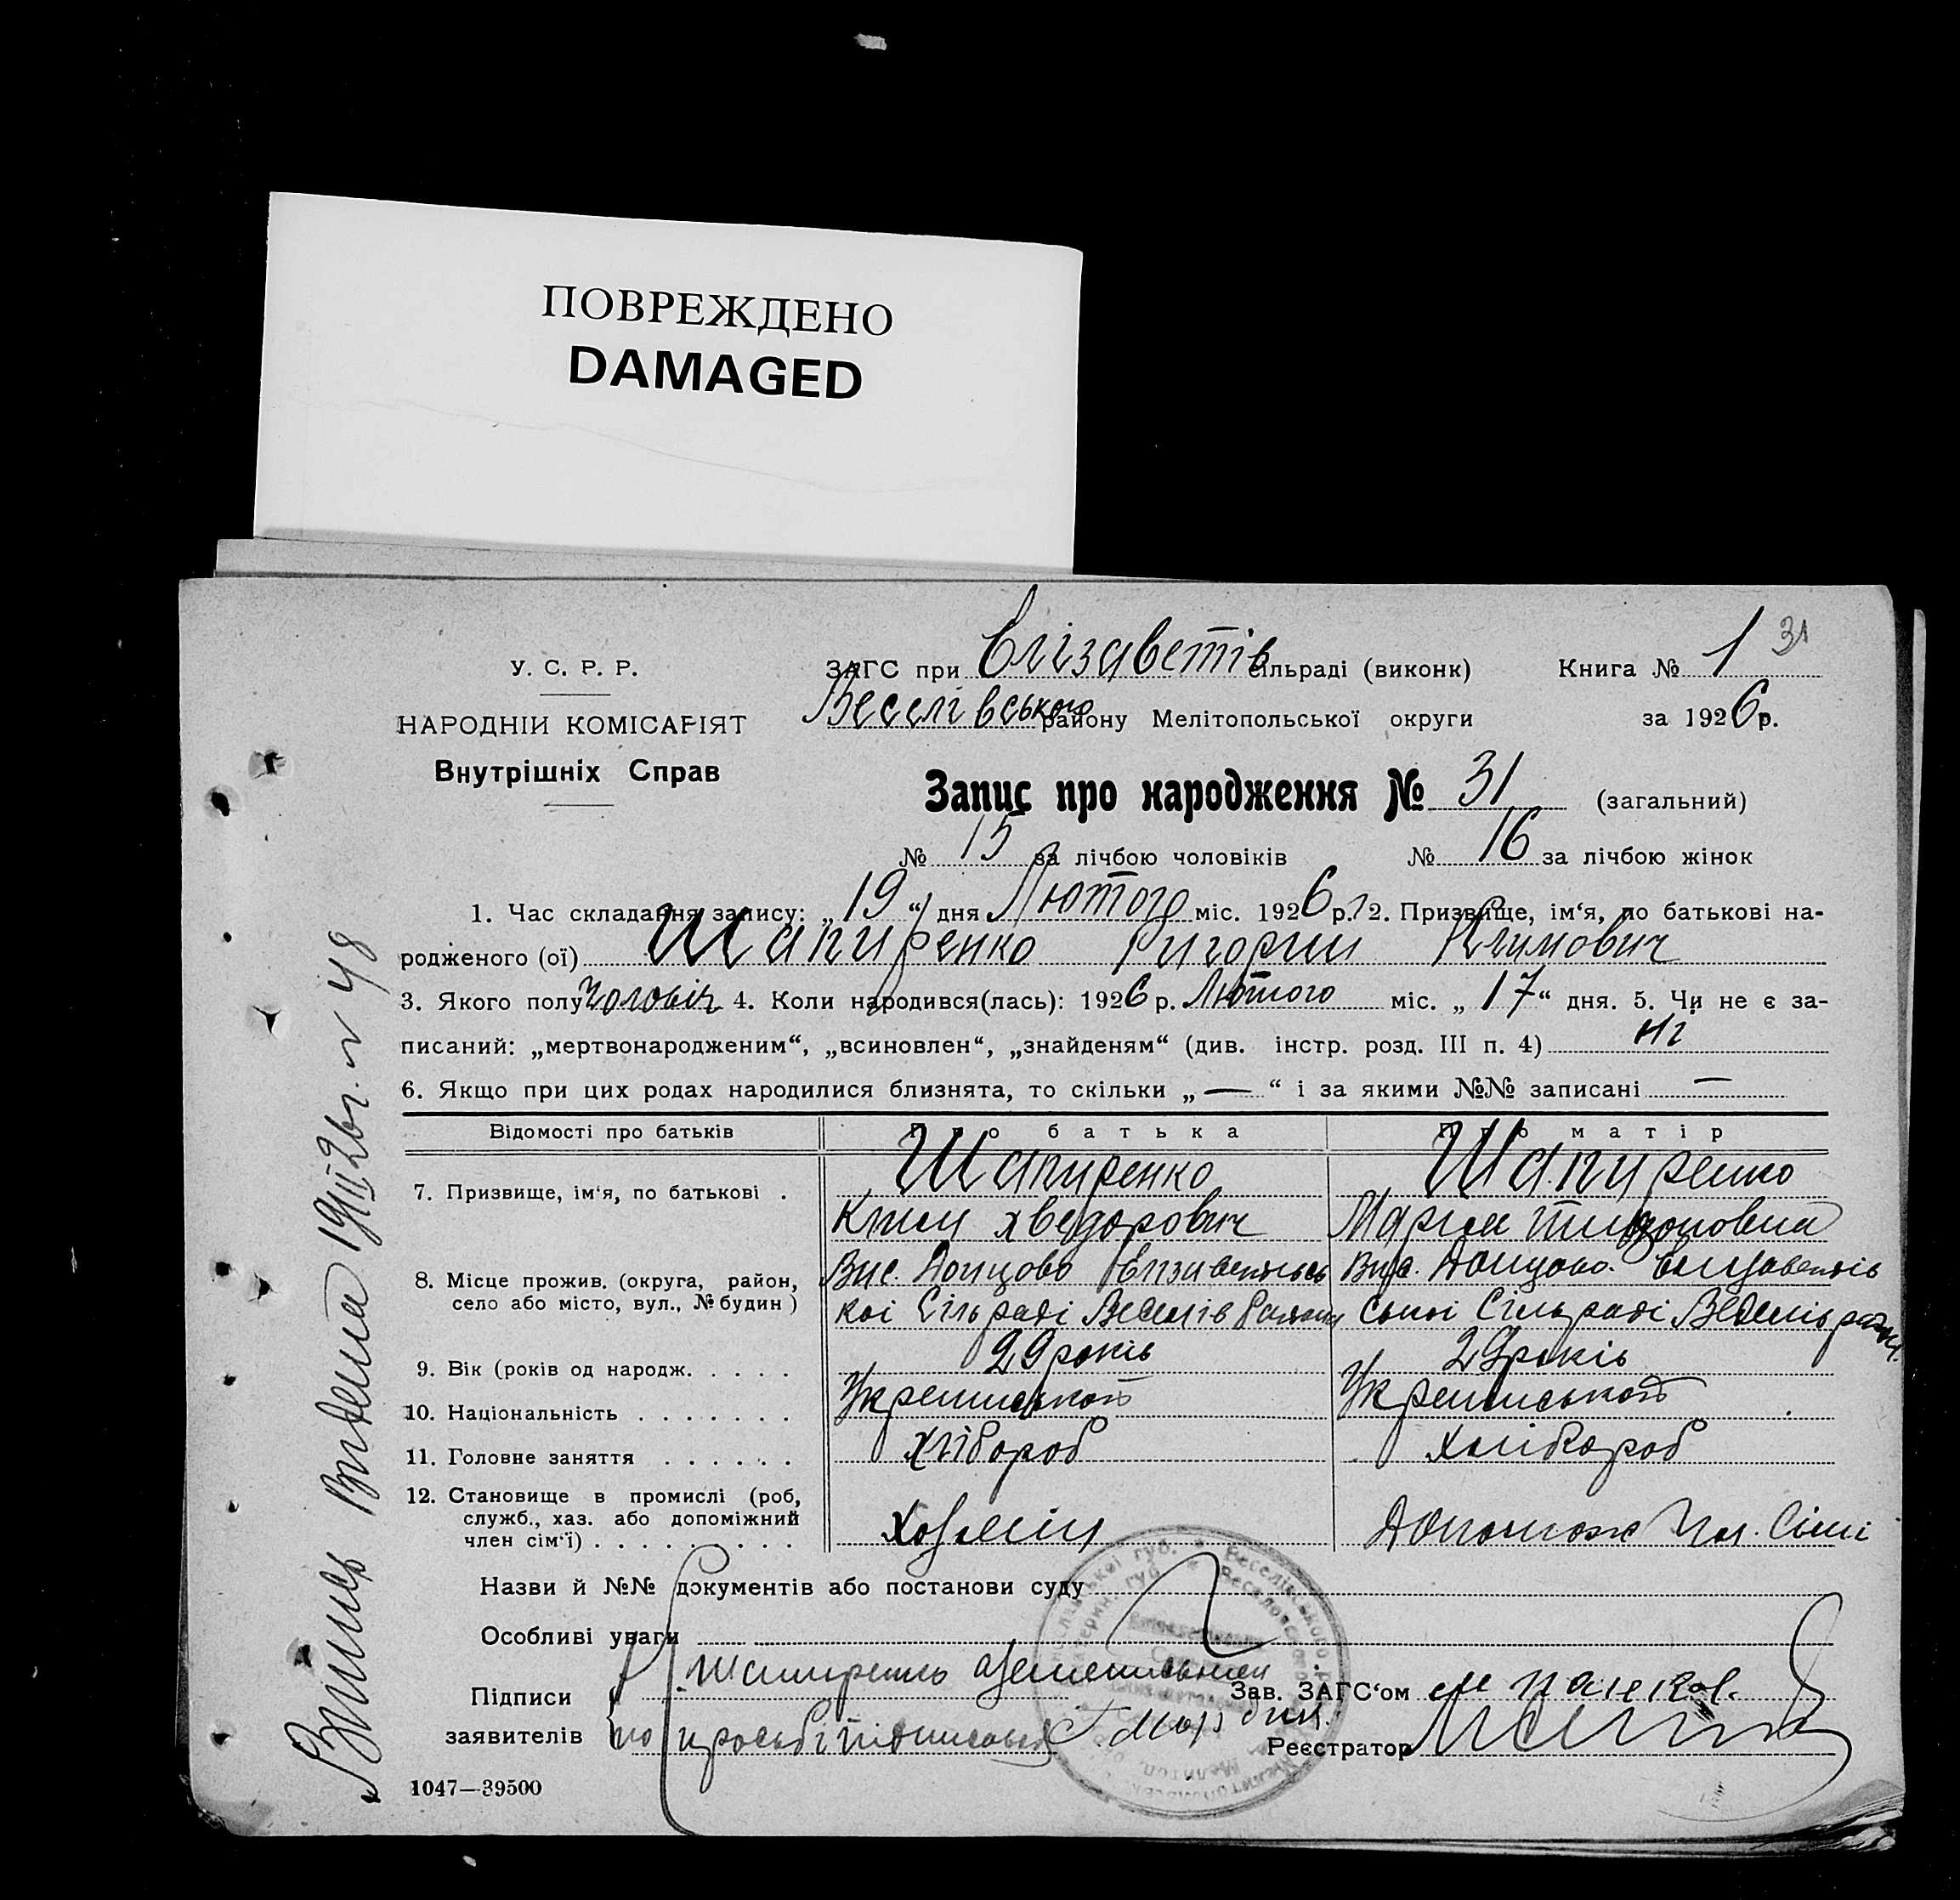 ПОВРЕЖДЕНО
DAMAGED
У. С. Р. Р.
НАРОДНІЙ КОМІСАРІЯТ
Внутрішніх Справ
ЗАГС при Єлізаветів сільраді (виконк)
Книга № 1 31
Веселівського району Мелітопольської округи
за 1926 р.
Запис про народження № 31 (загальний)
№ 15 за лічбою чоловіків № 16 за лічбою жінок
1. Час складання запису: „19“ дня Лютого міс. 1926 р. 2. Призвище, ім‘я, по батькові на-
родженого (ої) Шапиренко Григорий Климович
3. Якого полу чоловіч 4. Коли народився(лась): 1926 р. Лютого міс. „17“ дня. 5. Чи не є за-
писаний: „мертвонародженим“, „всиновлен“, „знайденям“ (див. інстр. розд. III п. 4) Ні
6. Якщо при цих родах народилися близнята, то скільки „—“ і за якими №№ записані —
Відомості про батьків Про батька Про матір
7. Призвище, ім‘я, по батькові . Шапиренко Шапиренко
Клим Хведорович Мария
8. Місце прожив. (округа, район, Вис. Донцово Єлизаветівсь Вис. Донцово. Єлизаветів
село або місто, вул., № будин) кої Сільраді Веселів Району ської Сільраді Веселів район.
9. Вік (років од народж. . . . . 29 років 29 років
10. Національність . . . . . . .
11. Головне заняття . . . . . . хлібороб хлібороб
12. Становище в промислі (роб,
служб., хаз. або допоміжний
член сім‘ї) . . . . . . . . . Хозяїн Допомож чл. Сімї
Назви й №№ документів або постанови суду
Особливі уваги
Підписи Шапиренко
Зав. ЗАГС‘ом
заявителів по просьбі підписався
Реєстратор
1047—39500
Випись Видана 19/II 26 г. № 48